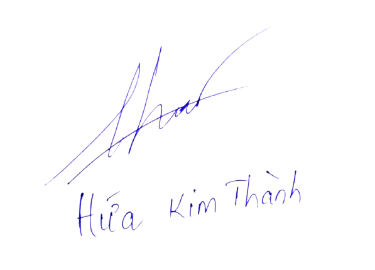 Hứa Kim Thành